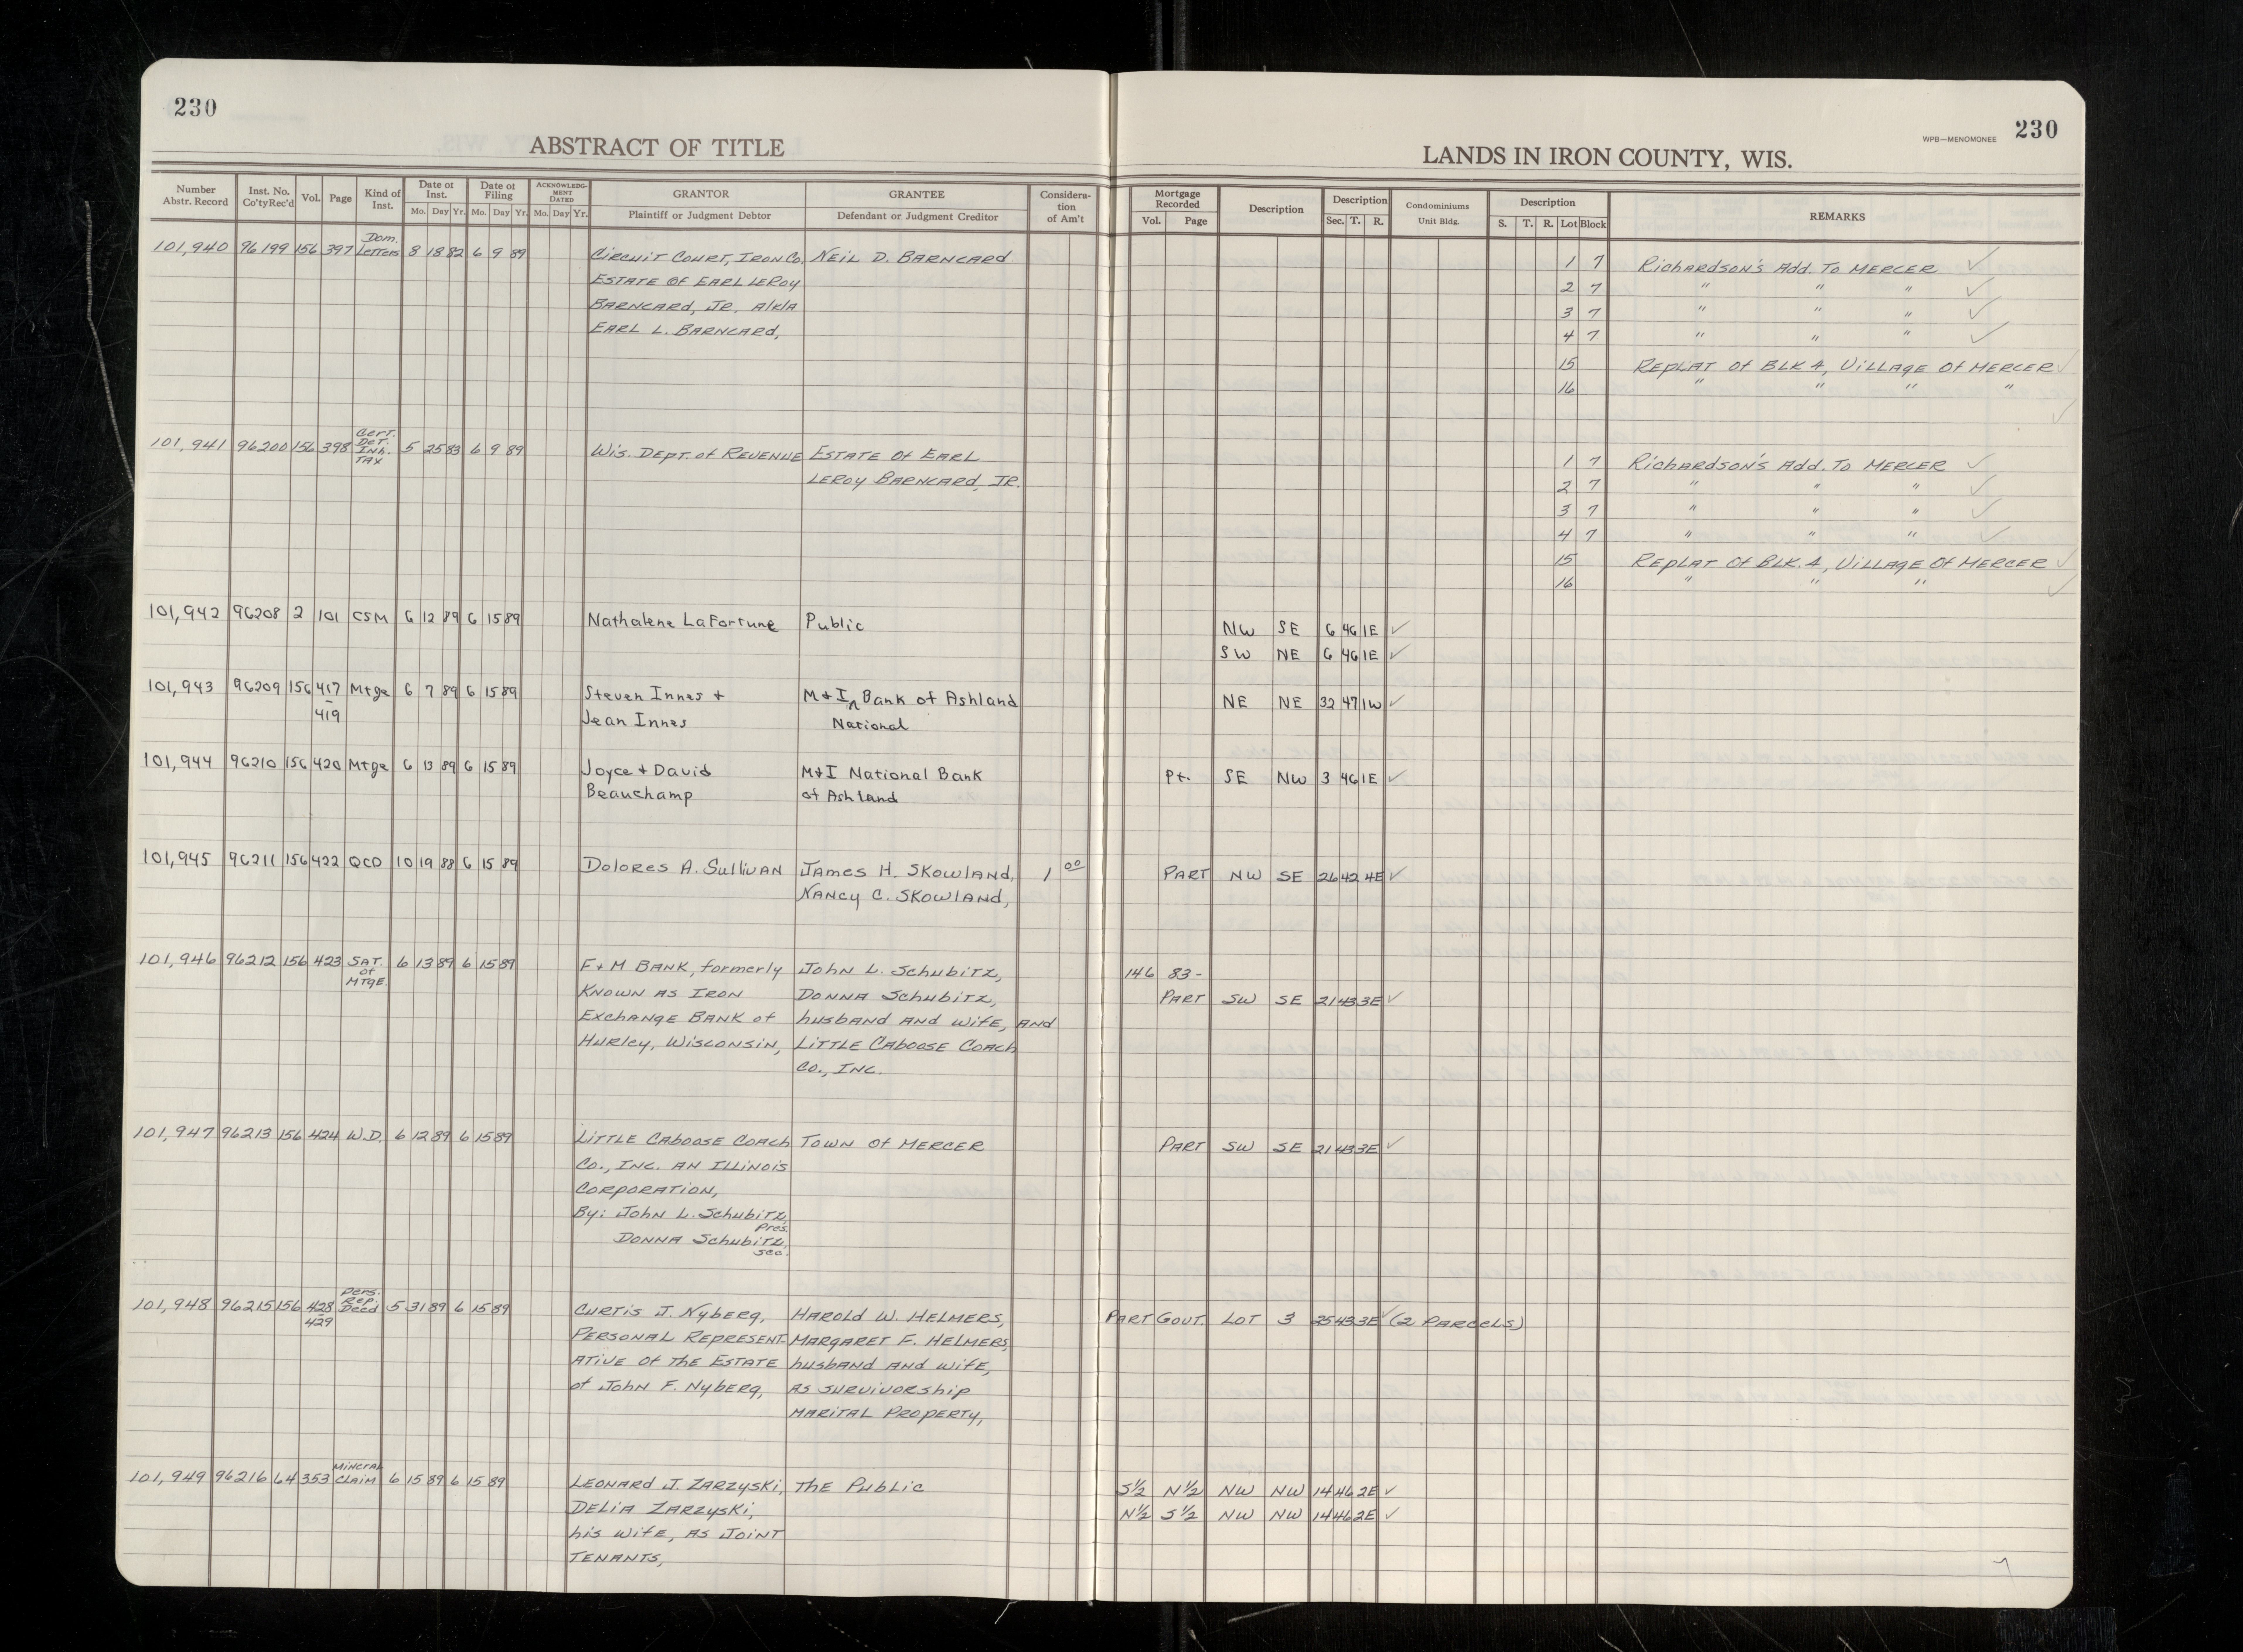 230
ABSTRACT OF TITLE
LANDS IN IRON COUNTY, WIS.
WPB—MENOMONEE 230
Number Abstr. Record Inst. No. Co'ty Rec'd Vol. Page Kind of Inst. Date of Inst. Mo. Day Yr. Date of Filing Mo. Day Yr. ACKNOWLEDGMENT DATED Mo. Day Yr. GRANTOR Plaintiff or Judgment Debtor GRANTEE Defendant or Judgment Creditor Consideration of Am't Mortgage Recorded Vol. Page Description Description Sec. T. R. Condominiums Unit Bldg. Description S. T. R. Lot Block REMARKS
101,940 96199 156 397 Dom. Letters 8 18 82 6 9 89 Circuit Court, Iron Co. Neil D. Barncard 1 7 Richardson's Add. To Mercer ✓
Estate of Earl LeRoy 2 7 " " " ✓
Barncard, Jr. a/k/a 3 7 " " " ✓
Earl L. Barncard, 4 7 " " " ✓
15 Replat of Blk 4, Village of Mercer ✓
16 " " " " ✓
101,941 96200 156 398 Cert. Det. Inh. Tax 5 25 83 6 9 89 Wis. Dept. of Revenue Estate of Earl 1 7 Richardson's Add. To Mercer ✓
LeRoy Barncard, Jr. 2 7 " " " ✓
3 7 " " " ✓
4 7 " " " ✓
15 Replat of Blk. 4, Village of Mercer ✓
16 " " " ✓
101,942 96208 2 101 CSM 6 12 89 6 15 89 Nathalene LaFortune Public NW SE 6 46 1E ✓
SW NE 6 46 1E ✓
101,943 96209 156 417 - 419 Mtge 6 7 89 6 15 89 Steven Innes + M+I ^ Bank of Ashland NE NE 32 47 1W ✓
Jean Innes National
101,944 96210 156 420 Mtge 6 13 89 6 15 89 Joyce + David M+I National Bank Pt. SE NW 3 46 1E ✓
Beauchamp of Ashland
101,945 96211 156 422 QCD 10 19 88 6 15 89 Dolores A. Sullivan James H. Skowland, 1 00 Part NW SE 26 42 4E ✓
Nancy C. Skowland,
101,946 96212 156 423 Sat. of Mtge. 6 13 89 6 15 89 F+M Bank, formerly John L. Schubitz, 146 83 -
Known as Iron Donna Schubitz, Part SW SE 21 43 3E ✓
Exchange Bank of husband and wife, and
Hurley, Wisconsin, Little Caboose Coach
Co., Inc.
101,947 96213 156 424 W.D. 6 12 89 6 15 89 Little Caboose Coach Town of Mercer Part SW SE 21 43 3E ✓
Co., Inc. an Illinois
Corporation,
By: John L. Schubitz,
Pres.
Donna Schubitz,
Sec.
101,948 96215 156 428 - 429 Pers. Rep. Deed 5 31 89 6 15 89 Curtis J. Nyberg, Harold W. Helmers, Part Gout. Lot 3 25 43 3E ✓ (2 Parcels)
Personal Represent- Margaret F. Helmers,
ative of the Estate husband and wife,
of John F. Nyberg, as survivorship
marital property,
101,949 96216 64 353 Mineral Claim 6 15 89 6 15 89 Leonard J. Zarzyski, The Public S½ N½ NW NW 14 46 2E ✓
Delia Zarzyski, N½ S½ NW NW 14 46 2E ✓
his wife, as joint
tenants,